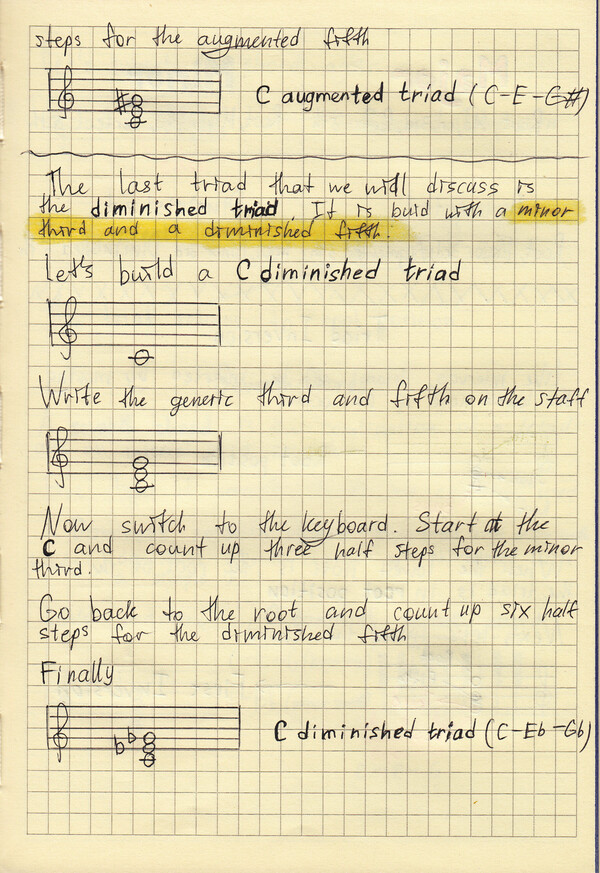 steps for the augmented fifth
C augmented triad (C-E-G#)
The last triad that we will discuss is
the diminished triad. It is buid with a minor
third and a diminished fifth.
Let's build a C diminished triad
Write the generic third and fifth on the staff
Now switch to the keyboard. Start at the
C and count up three half steps for the minor
third.
Go back to the root and count up six half
steps for the diminished fifth
Finally
C diminished triad (C-Eb-Gb)